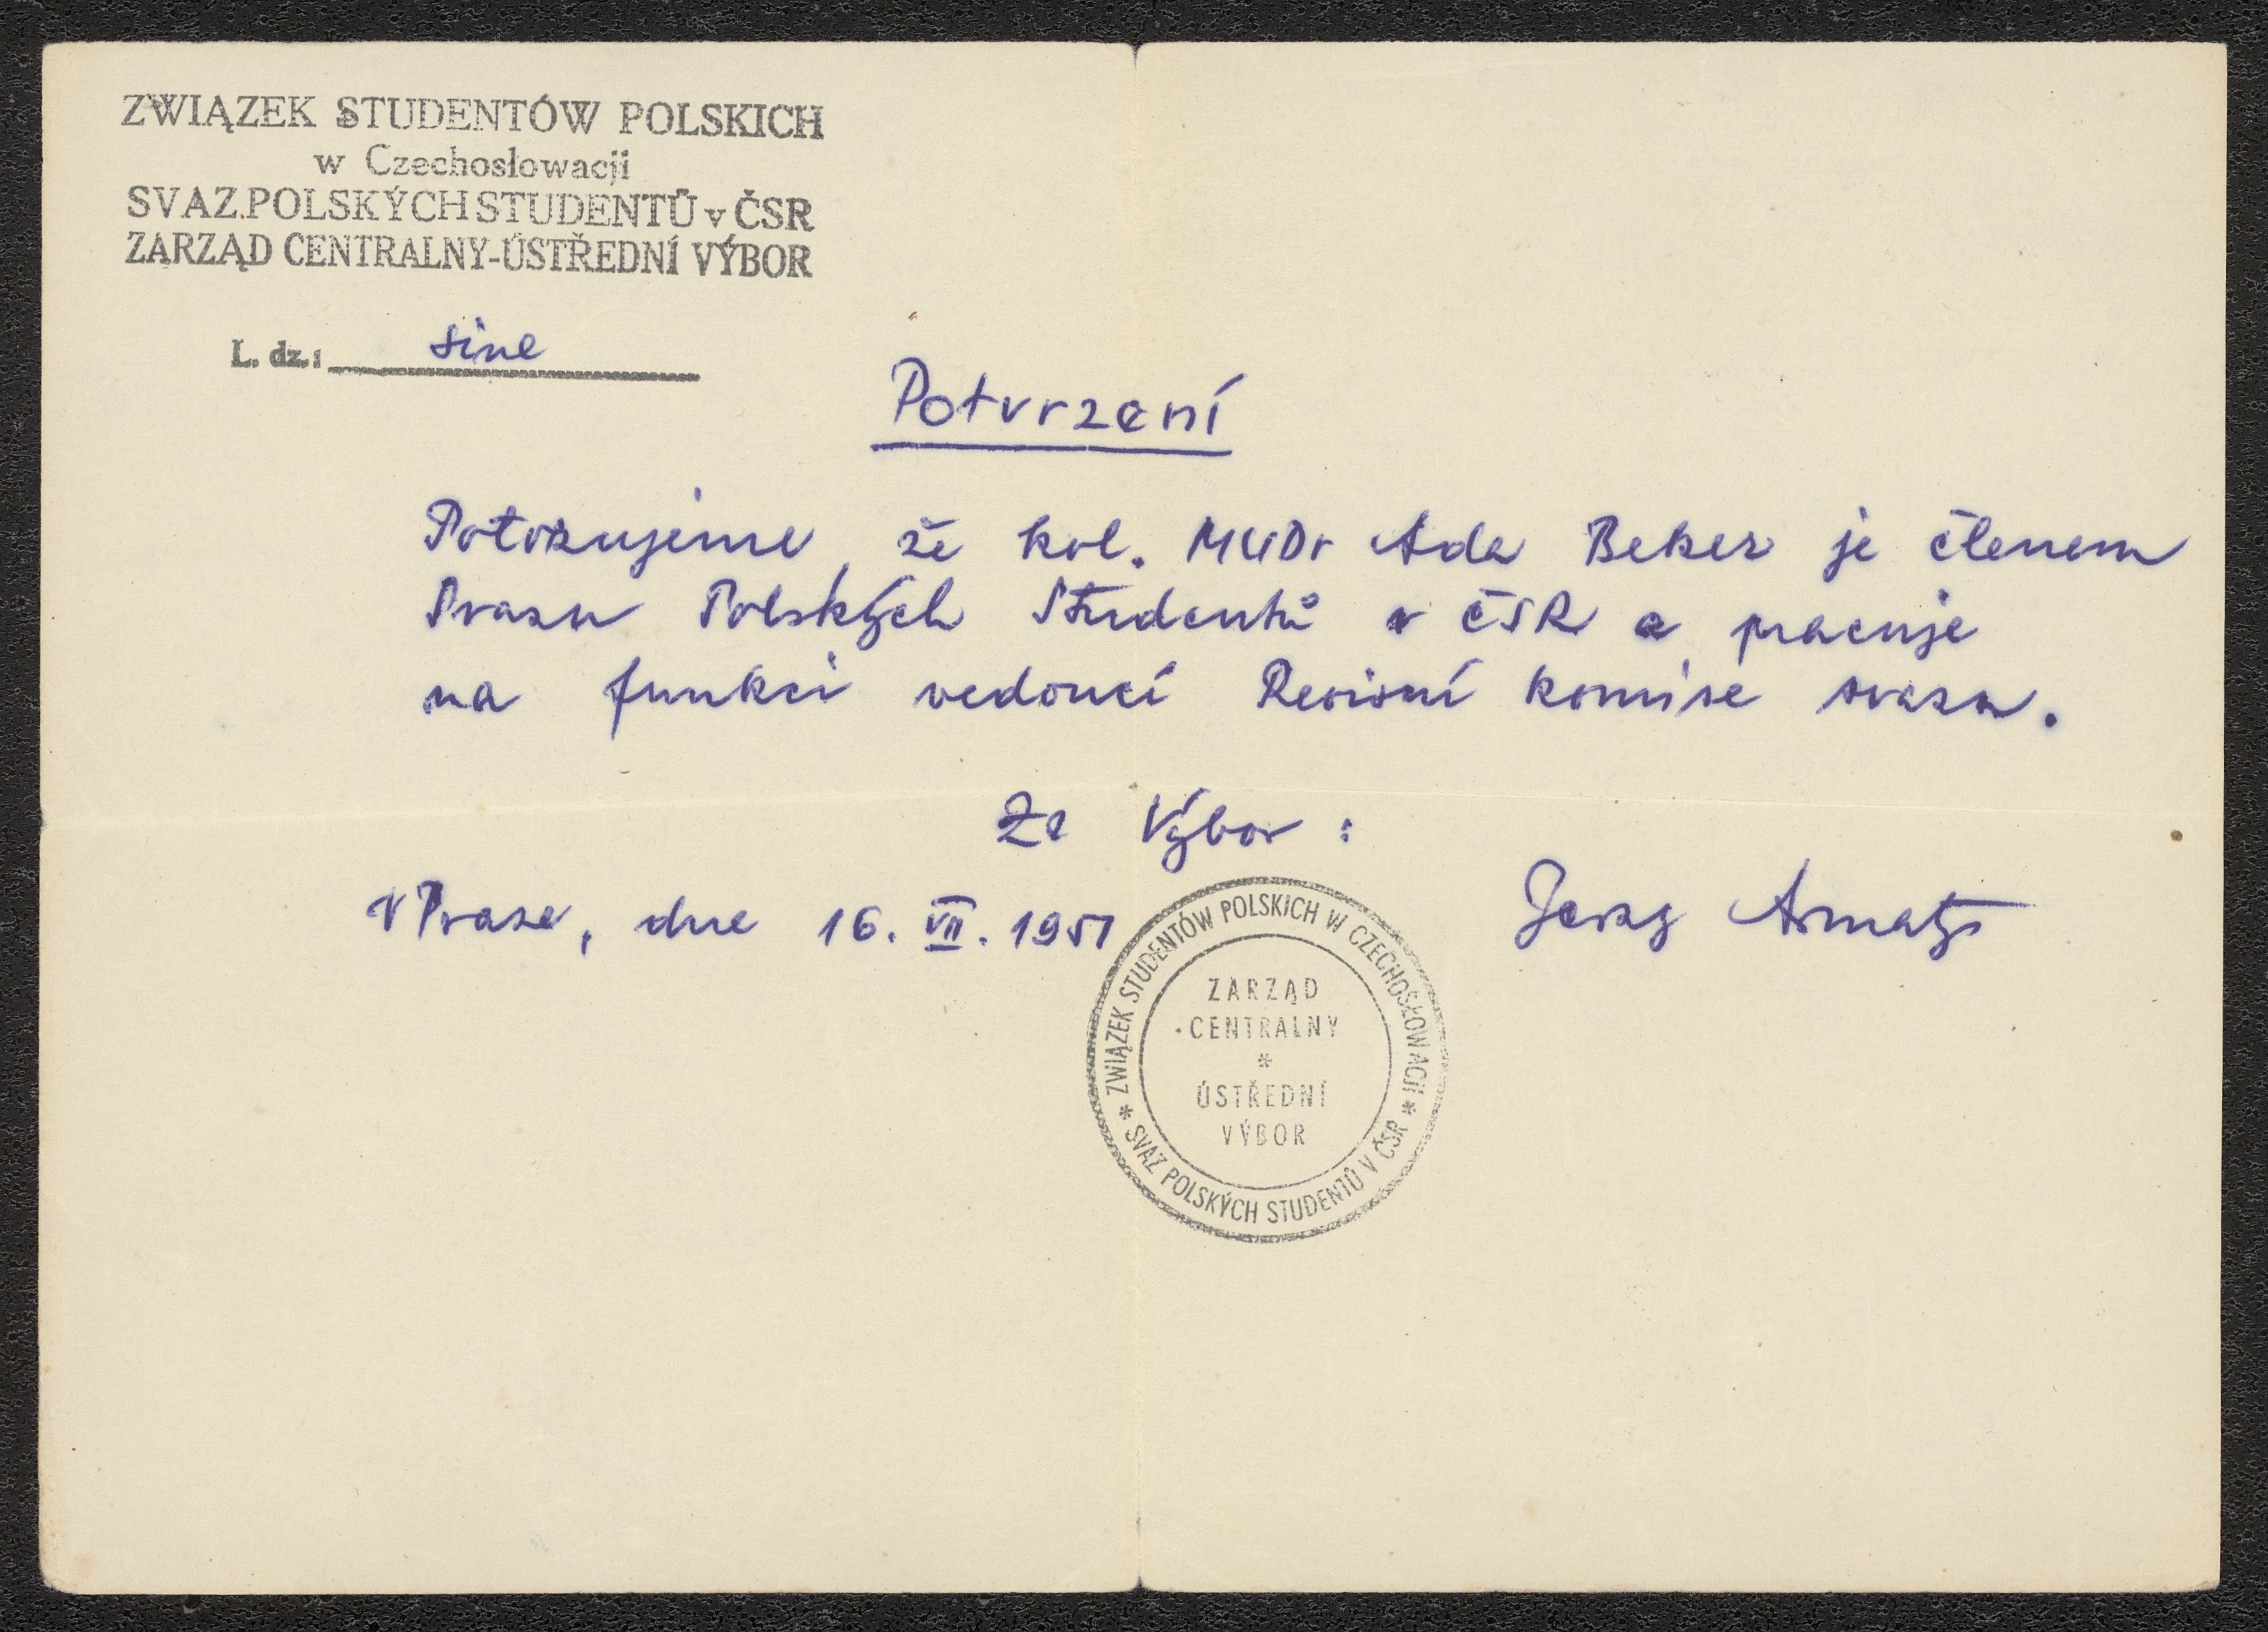 ZWIĄZEK STUDENTÓW POLSKICH
w Czechosłowacji
SVAZ POLSKÝCH STUDENTŮ v ČSR
ZARZĄD CENTRALNY-ÚSTŘEDNÍ VÝBOR
L. dz.: sine
Potvrzení
Potvrzujeme, že kol. MUDr Ada Beker je členem
Svazu Polských Studentů v ČSR a pracuje
na funkci vedoucí Revisní komise svazu.
Za Výbor:
V Praze, dne 16. VII. 1951
Jerzy
ZWIĄZEK STUDENTÓW POLSKICH W CZECHOSŁOWACJI
ZARZĄD
CENTRALNY
*
ÚSTŘEDNÍ
VÝBOR
* SVAZ POLSKÝCH STUDENTŮ V ČSR *